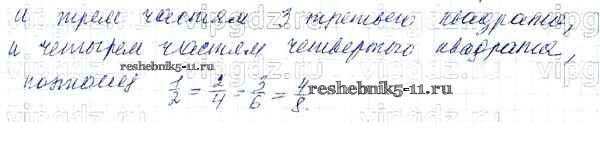 и трем частям 3 третьего квадрата,
и четырем частям четвертого квадрата,
поэтому 1/2 = 2/4 = 3/6 = 4/8.
reshebnik5-11.ru
reshebnik5-11.ru
vipgdz.ru